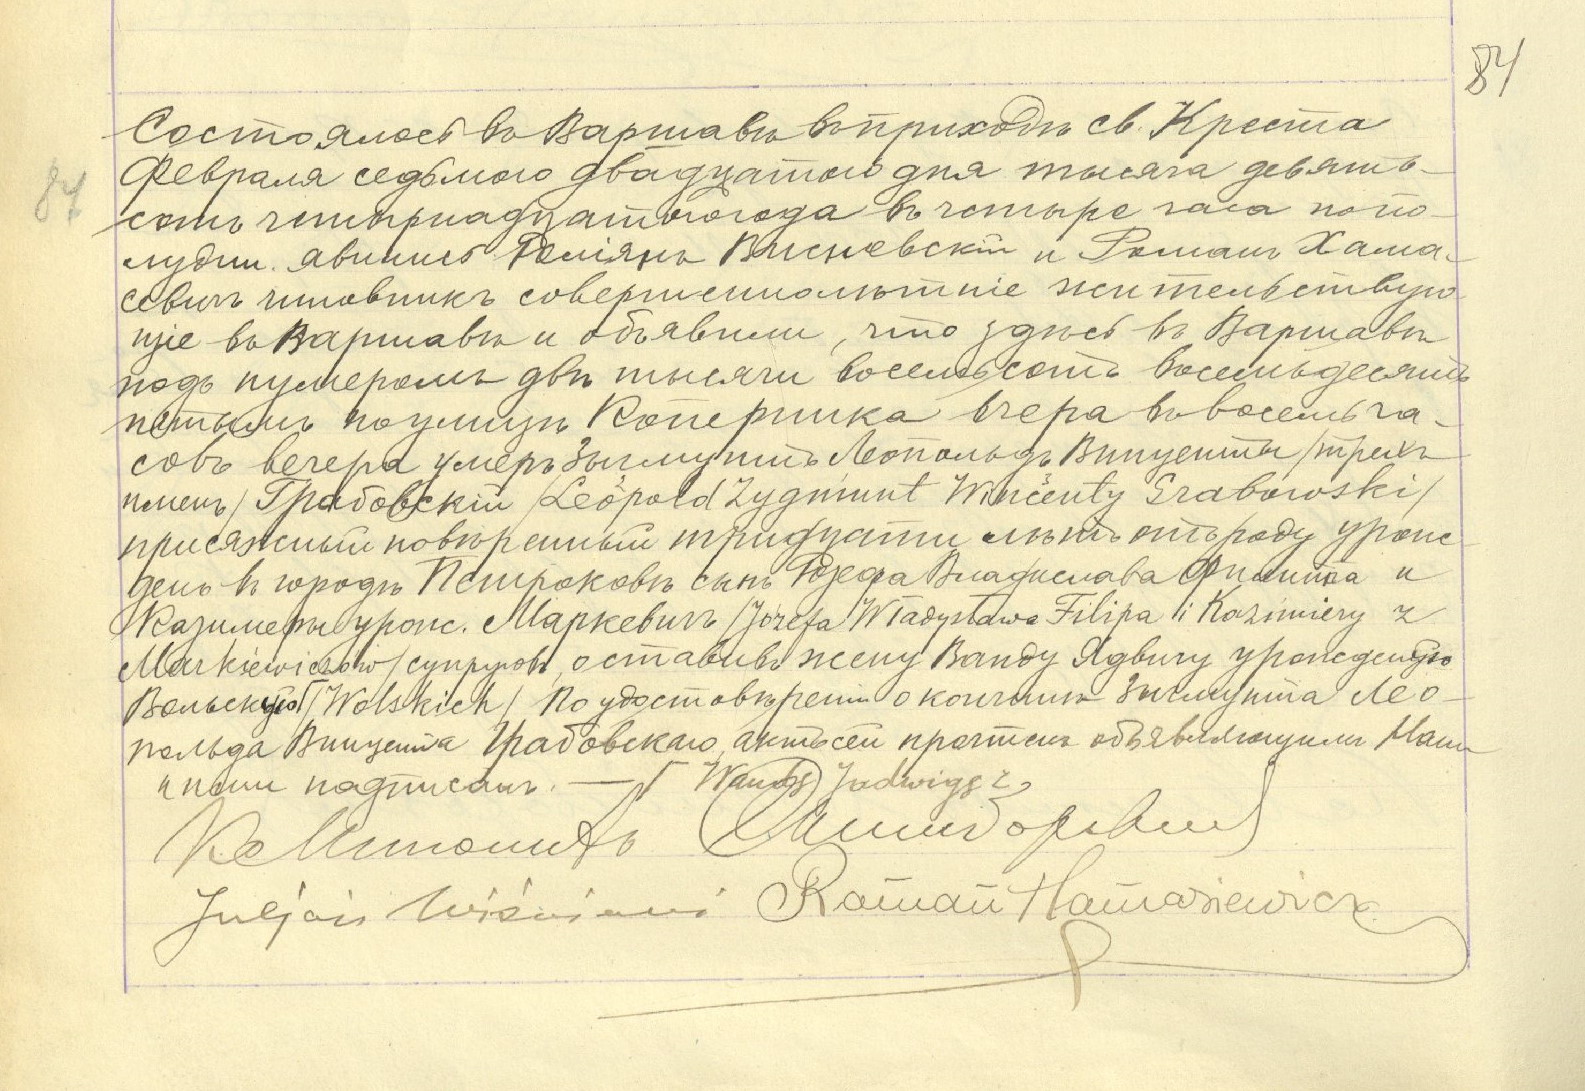 84
84
Состоялось въ Варшавѣ въ приходѣ св. Креста
Февраля седьмого двадцатого дня тысяча девять-
сотъ четырнадцатого года въ четыре часа попо-
лудни. Явились Юліянъ Висневскій и Романъ Хама-
севичъ чиновникъ совершеннолѣтніе жительствую-
щіе въ Варшавѣ и объявили, что здѣсь въ Варшавѣ
подъ нумеромъ двѣ тысячи восемьсотъ восемьдесятъ
пятымъ по улицѣ Коперника вчера въ восемь ча-
совъ вечера умеръ Зыгмунтъ Леопольдъ Винценты /трехъ
именъ/ Грабовскій /Leopold Zygmunt Wincenty Grabowski/
присяжный повѣренный тридцати лѣтъ отъ роду урож-
денъ въ городѣ Петроковѣ сынъ Юзефа Владислава Филипа и
Казимеры урож. Маркевичъ /Józefa Władysława Filipa i Kazimiery z
Markiewiczów/ супруговъ, оставивъ жену Ванду Ядвигу урожденную
Вольскую /Wolskich/ По удостовѣреніи о кончинѣ Зыгмунта Лео-
польда Винцента Грабовскаго, актъ сей прочтенъ объявляющимъ Нами
и ними подписанъ. — Wandę Jadwigę z
Roman Hamasiewicz